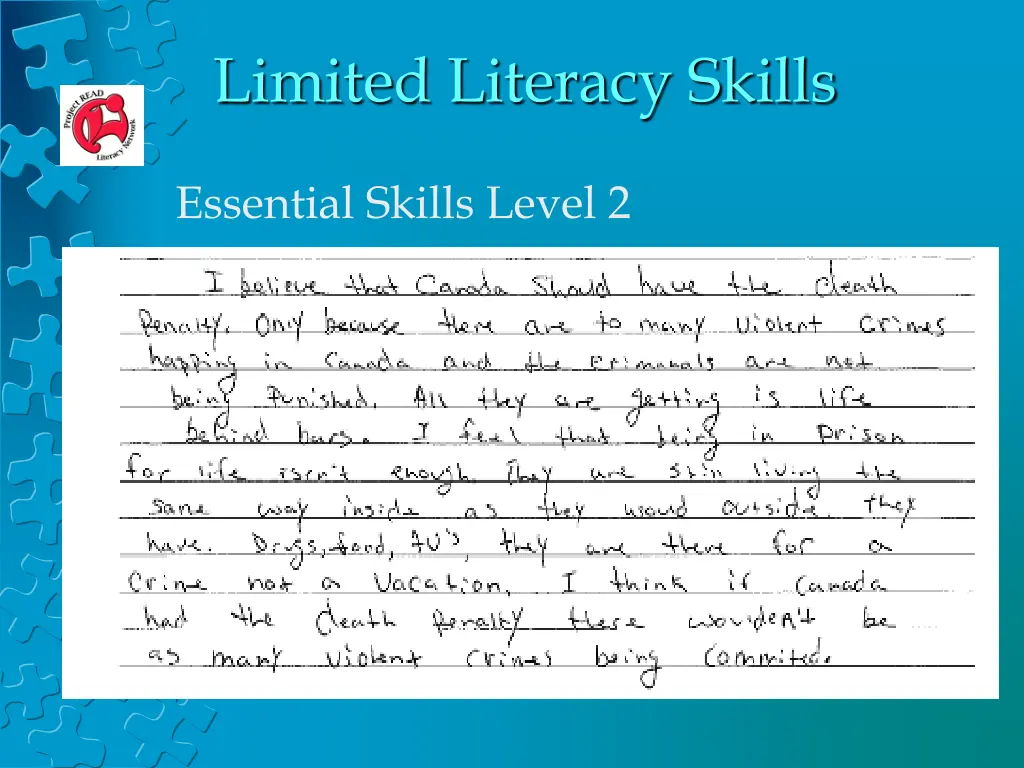 Limited Literacy Skills
Project READ
Literacy Network
Essential Skills Level 2
I believe that Canada Should have the death
Penalty. Only because there are to many violent crimes
happing in Canada and the crimanals are not
being Punished. All they are getting is life
behind bars. I feel that being in Prison
for life isn't enough. They are still living the
same way inside as they would outside. They
have. Drugs, food, TV's, they are there for a
Crime not a Vacation. I think if Canada
had the death Penalty there woulden't be
as many violent crimes being Commited.